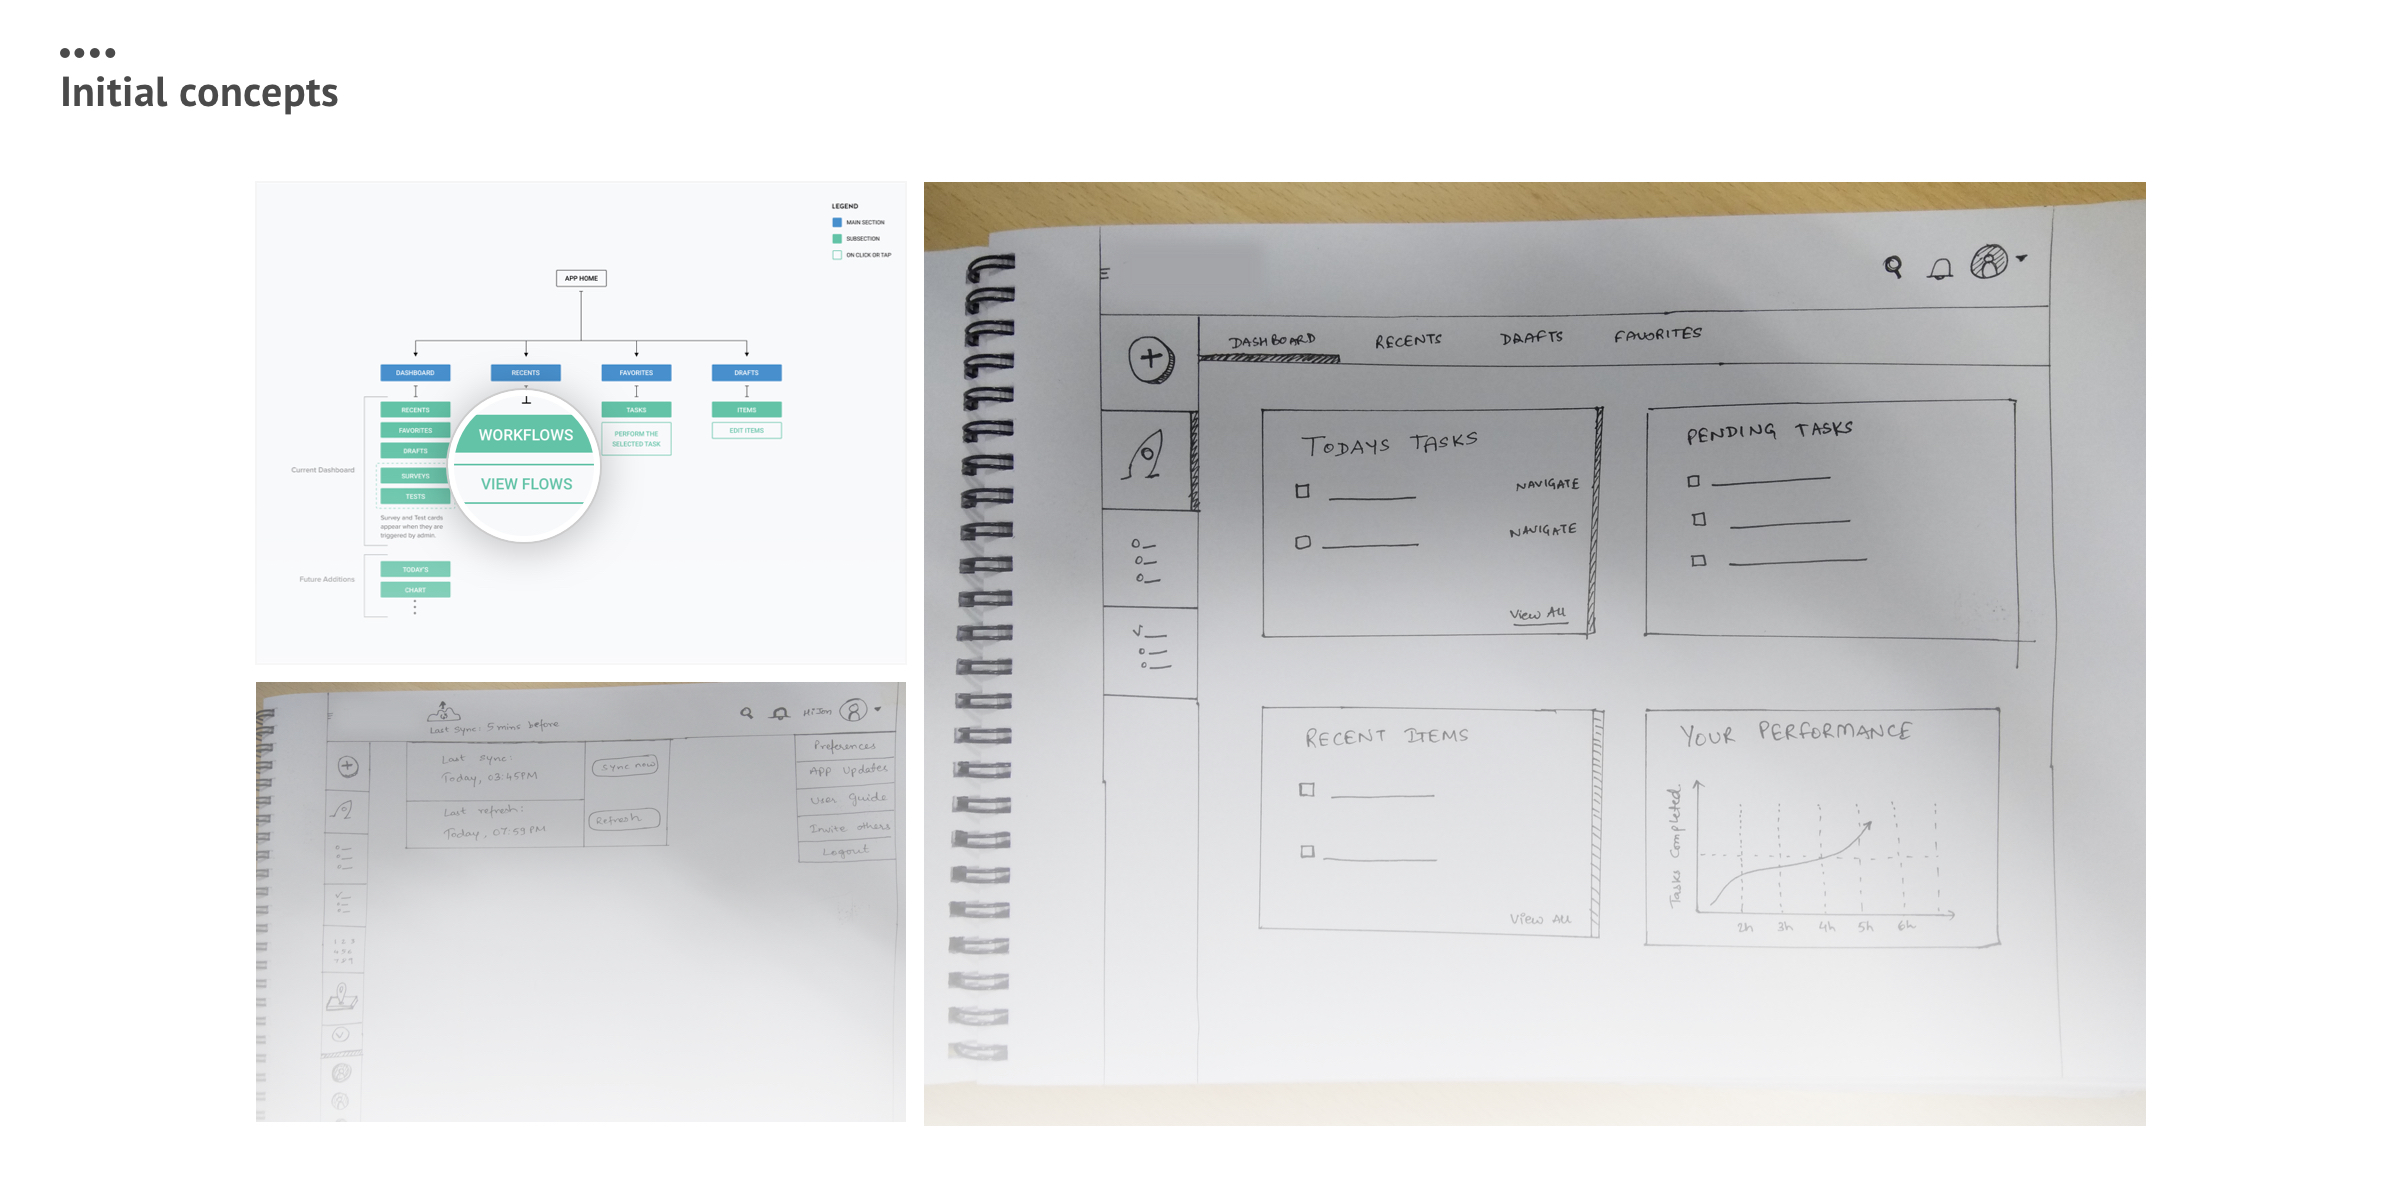 Initial concepts
LEGEND
MAIN SECTION
SUBSECTION
ON CLICK OR TAP
APP HOME
DASHBOARD
RECENTS
FAVORITES
DRAFTS
RECENTS
FAVORITES
DRAFTS
SURVEYS
TESTS
Survey and Test cards
appear when they are
triggered by admin.
Current Dashboard
Future Additions
TODAY'S
CHART
WORKFLOWS
VIEW FLOWS
TASKS
PERFORM THE
SELECTED TASK
ITEMS
EDIT ITEMS
Last Sync: 5 mins before
Hi Jon
Last sync:
Today, 03:45PM
Sync now
Last refresh:
Today, 07:59 PM
Refresh
Preferences
APP Updates
User guide
Invite others
Logout
1 2 3
4 5 6
7 8 9
DASHBOARD
RECENTS
DRAFTS
FAVORITES
TODAYS TASKS
NAVIGATE
NAVIGATE
View All
PENDING TASKS
RECENT ITEMS
View All
YOUR PERFORMANCE
Tasks Completed
2h 3h 4h 5h 6h